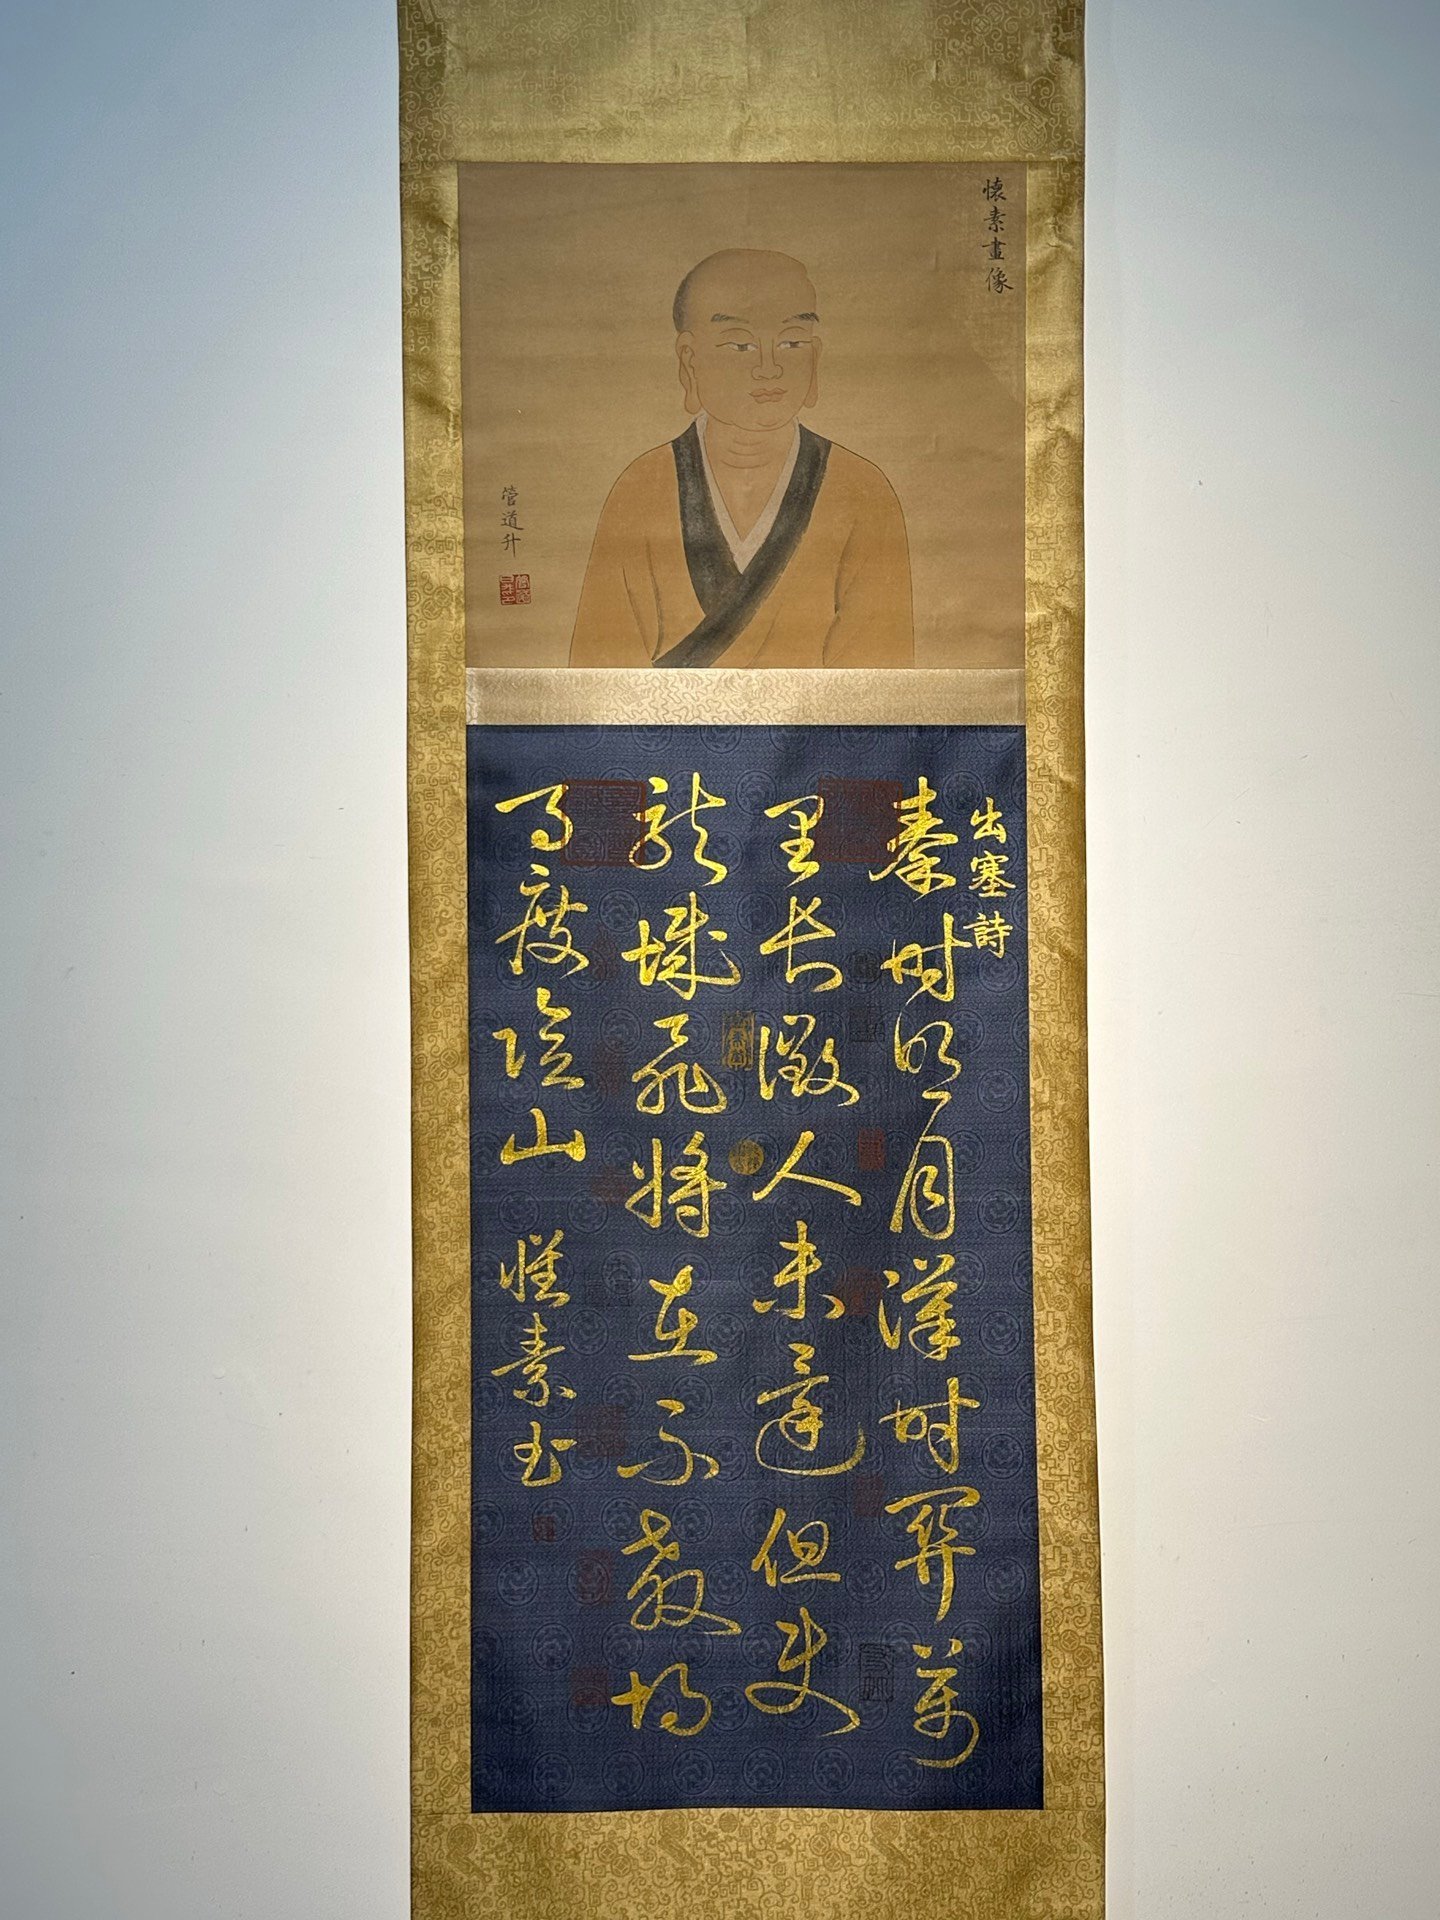 懷素畫像
管道升
出塞詩
秦時明月漢時關萬
里長徵人未還但使
龍城飛將在不教胡
馬度陰山 懷素书